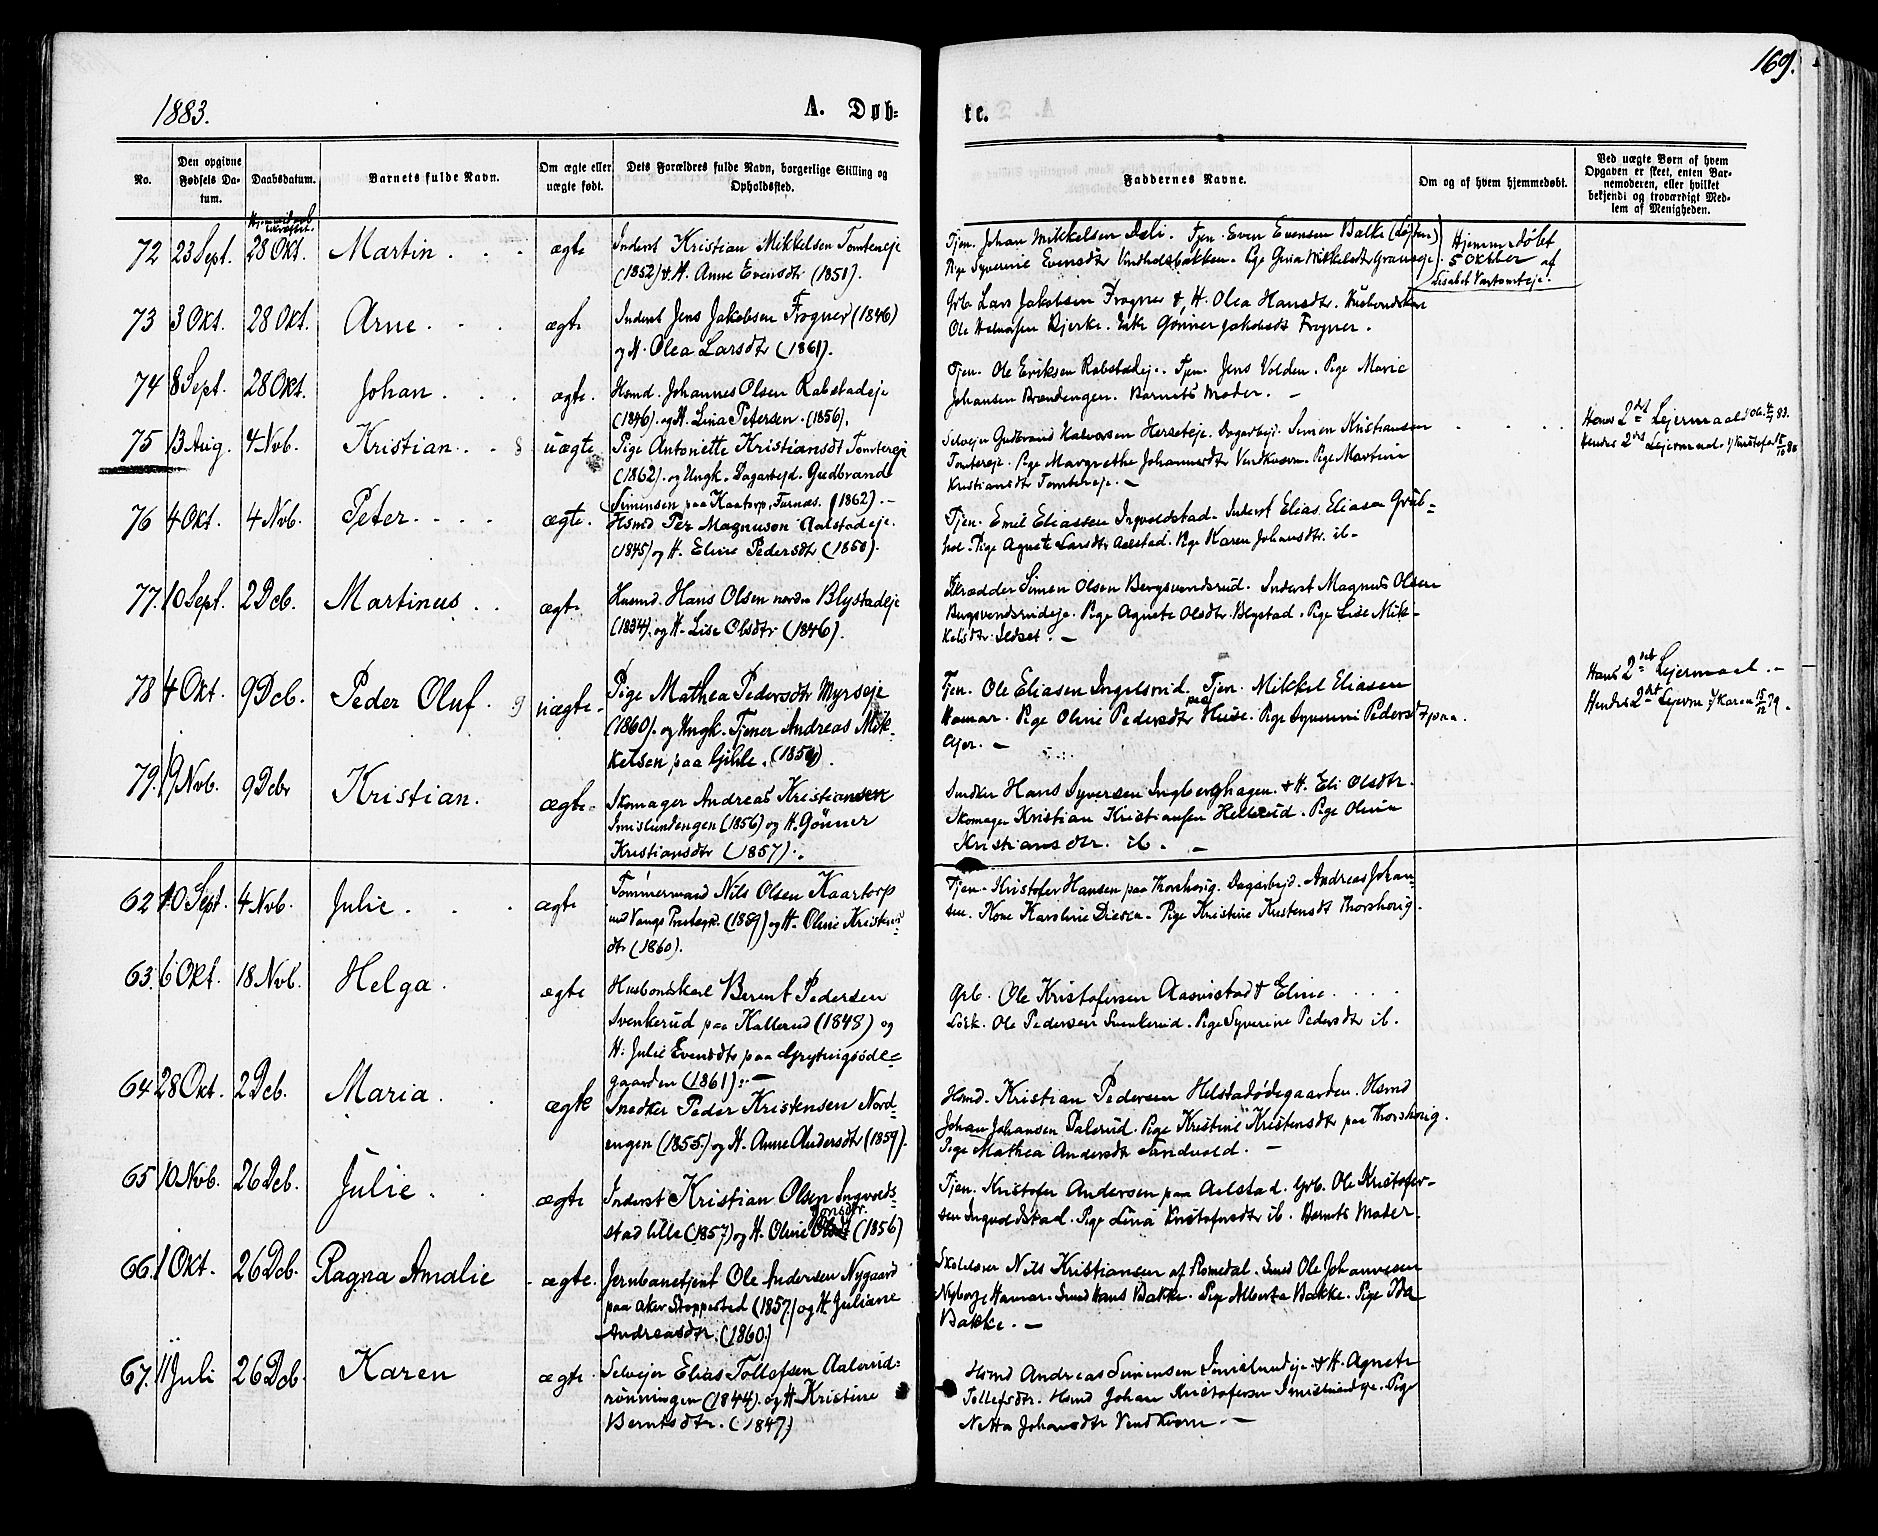 169.
1883.
A. Døb-
te.
No.
Den opgivne Fødsels Da-
tum.
Daabsdatum.
Barnets fulde Navn.
Om ægte eller uægte født.
Dets Forældres fulde Navn, borgerlige Stilling og Opholdssted.
Faddernes Navne.
Om og af hvem hjemmedøbt.
Ved uægte Børn af hvem Opgaven er skeet, enten Bar-
nemoderen, eller hvilket bekjendt og troværdigt Med-
lem af Menigheden.
72 23 Sept. 28 Okt. Martin ægte
Inderst Kristian Mikkelsen Tomtereje
(1852) & H. Anne Evensdtr (1851).
Tjen. Johan Mikkelsen Dæli. Tjen. Even Evensen Balke (Løten)
Pige Syverine Evensdtr
Hjemmedøbt
5 Oktber af
73 3 Okt. 28 Okt. Arne ægte
Inderst Jens Jakobsen Frogner (1846)
og H. Olea Larsdtr (1861).
Grb. Lars Jakobsen Frogner &, H. Olea Hansdtr. Husbondskar
Ole Halvorsen Bjerke. Enke Gønner Jakobsdt Frogner.
74 8 Sept. 28 Okt. Johan ægte.
Hsmd. Johannes Olsen Rabstadeje
(1846). og H. Lina Petersen. (1856).
Tjen. Ole Eriksen Rabstadej. Tjen. Jens Volden. Pige Marie
Johansen Brændengen. Barnets Moder. –
75 13 Aug. 4 Nvb. Kristian uægte
Pige Antonette Kristiansdt Tomtereje
(1862). og Ungk. Dagarbejd. Gudbrand
Simensen paa Kaatorp, Furnæs. (1862). –
Selvejer Gudbrand Halvorsen Herseteje. Dagarbejd. Simen Kristiansen
Tomtereje. Pige Margrethe Johannesdtr Vendkværn. Pige Martine
Kristiansdtr Tomtereje. –
Hans 2det Lejermaal
Hendes 2det Lejermaal
76 4 Okt. 4 Nvb. Peter ægte.
Hsmd Per Magnuson Aalstadeje.
(1845) og H. Eline Pedersdtr (1850).
Tjen. Emil Eliassen Ingvoldstad. Inderst Elias Eliasen Grub-
hol. Pige Agnete Larsdtr Aalstad. Pige Karen Johansdtr. ib –
77. 10 Sept. 2 Dcb. Martinus ægte
Husmd. Hans Olsen nordre Blystadeje
(1834). og H. Lise Olsdtr (1846).
Skrædder Simen Olsen Bergsvendsrud. Inderst Magnus Olsen
Bergsvendsrudeje. Pige Agnete Olsdtr Blystad. Pige Lise Mik-
kelsdtr Ildset. –
78 4 Okt. 9 Dcb. Peder Oluf. uægte
Pige Mathea Pedersdtr Myrseje
(1860). og Ungk. Tjener Andreas Mik-
kelsen paa Gihle.
Tjen. Ole Eliasen Ingelsrud. Tjen. Mikkel Eliasen
Hamar. Pige Oline Pedersdtr paa Huse. Pige Syverine Pedersdt paa
Ajer. –
Hans 2det Lejermaal. –
Hendes 2det Lejerm.
79. 19 Nvb. 9 Dcbr Kristian. ægte
Skomager Andreas Kristiansen
Imislundengen (1856) og H. Gønner
Kristiansdtr (1857).
Snedker Hans Syversen Ingberghagen. & H. Eli Olsdtr.
Skomager Kristian Kristiansen Hellerud. Pige Oline
Kristiansdtr. ib. –
62 10 Sept. 4 Nvb. Julie ægte
Tømmermand Nils Olsen Kaartorp
ved Vangs Prestegd. og H. Oline Kristens-
dtr (1860).
Tjen. Kristofer Hansen paa Thorshorig. Dagarbejd. Andreas Johan-
sen. Kone Karoline Diesen. Pige Kristine Kristensdt Thorshorig.
63. 6 Okt. 18 Nvb. Helga. ægte
Husbondskarl Bernt Pedersen
Svenkerud paa Kallerud (1848) og
H. Julie Evensdtr paa Grytingsøde-
gaarden (1861). –
Grb. Ole Kristofersen Aasvistad & Eline
Ole Pedersen Svenkerud. Pige Syverine Pedersdtr ib.
64 28 Okt. 2 Dcb. Maria. ægte
Snedker Peder Kristensen Nord-
engen (1855) og H. Anne Andersdtr (1859).
Hsmd. Kristian Pedersen Helstadødegaarden. Hsmd
Johan Johansen Dalerud. Pige Kristine Kristensdtr paa Thorshorig.
Pige Mathea Andersdtr Sandvold. –
65 10 Nvb. 26 Dcb. Julie. ægte
Inderst Kristian Olsen Ingvolds-
stad lille (1857) og H. Oline (1856)
Tjen. Kristofer Andersen paa Aalstad. Grb. Ole Kristofer-
sen Ingvoldstad. Pige Lina Kristofersdtr ib. Barnets Moder.
66. 1 Okt. 26 Dcb. Ragna Amalie ægte.
Jernbanetjent Ole Andersen Nygaard
paa Aker Stoppested (1857) og H Juliane
Andreasdtr. (1860)
Skolelærer Nils Kristiansen af Romedal. Smed Ole Johannesen
Nyborg Hamar. Smed Hans Bakke. Pige Alberta Bakke. Pige Ida
Bakke. –
67. 11 Juli 26 Dcb. Karen ægte.
Selvejer Elias Tollefsen Aalerud-
rønningen (1844). og H Kristine
Berntsdtr. (1847)
Hsmd Andreas Simensen Imislundeje & H. Agnete
Tollefsdtr. Hsmd Johan Kristofersen Imislundeje. Pige
Netta Johansdtr Vendkværn. –